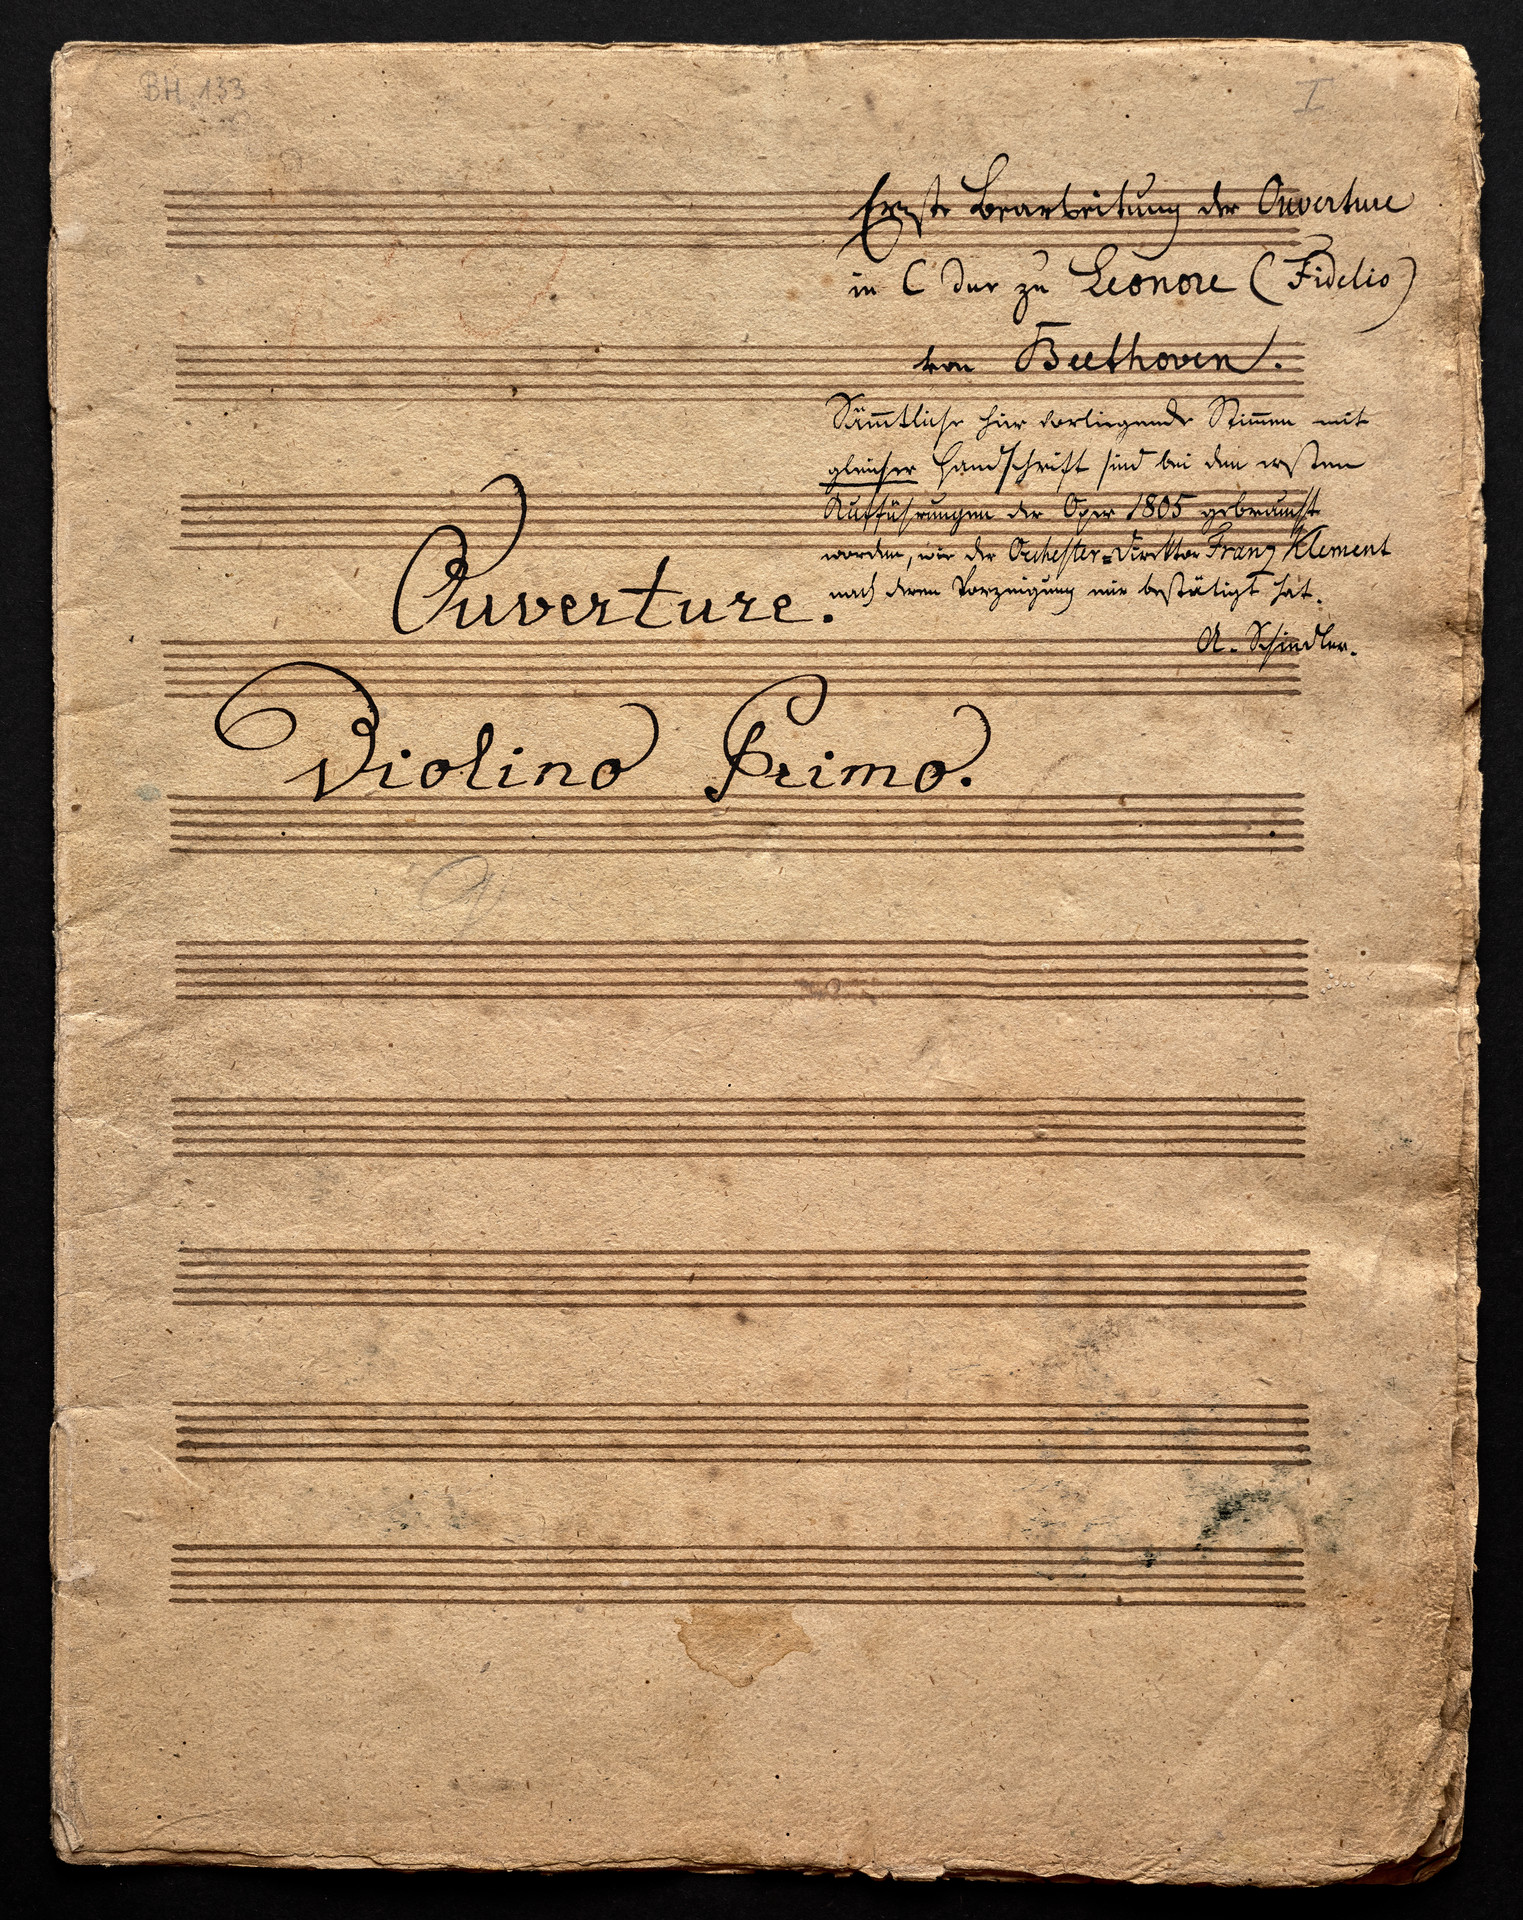 BH, 133
I
Erste Bearbeitung der Ouverture
in C dur zu Leonore (Fidelio)
von Beethoven.
Sämmtliche hier vorliegende Stimmen mit
gleicher Handschrift sind bei den ersten
Aufführungen der Oper 1805 gebraucht
worden, wie der Orchester=Direktor Franz Klement
nach deren Vorzeigung mir bestätigt hat.
A. Schindler.
Ouverture.
Violino Primo.